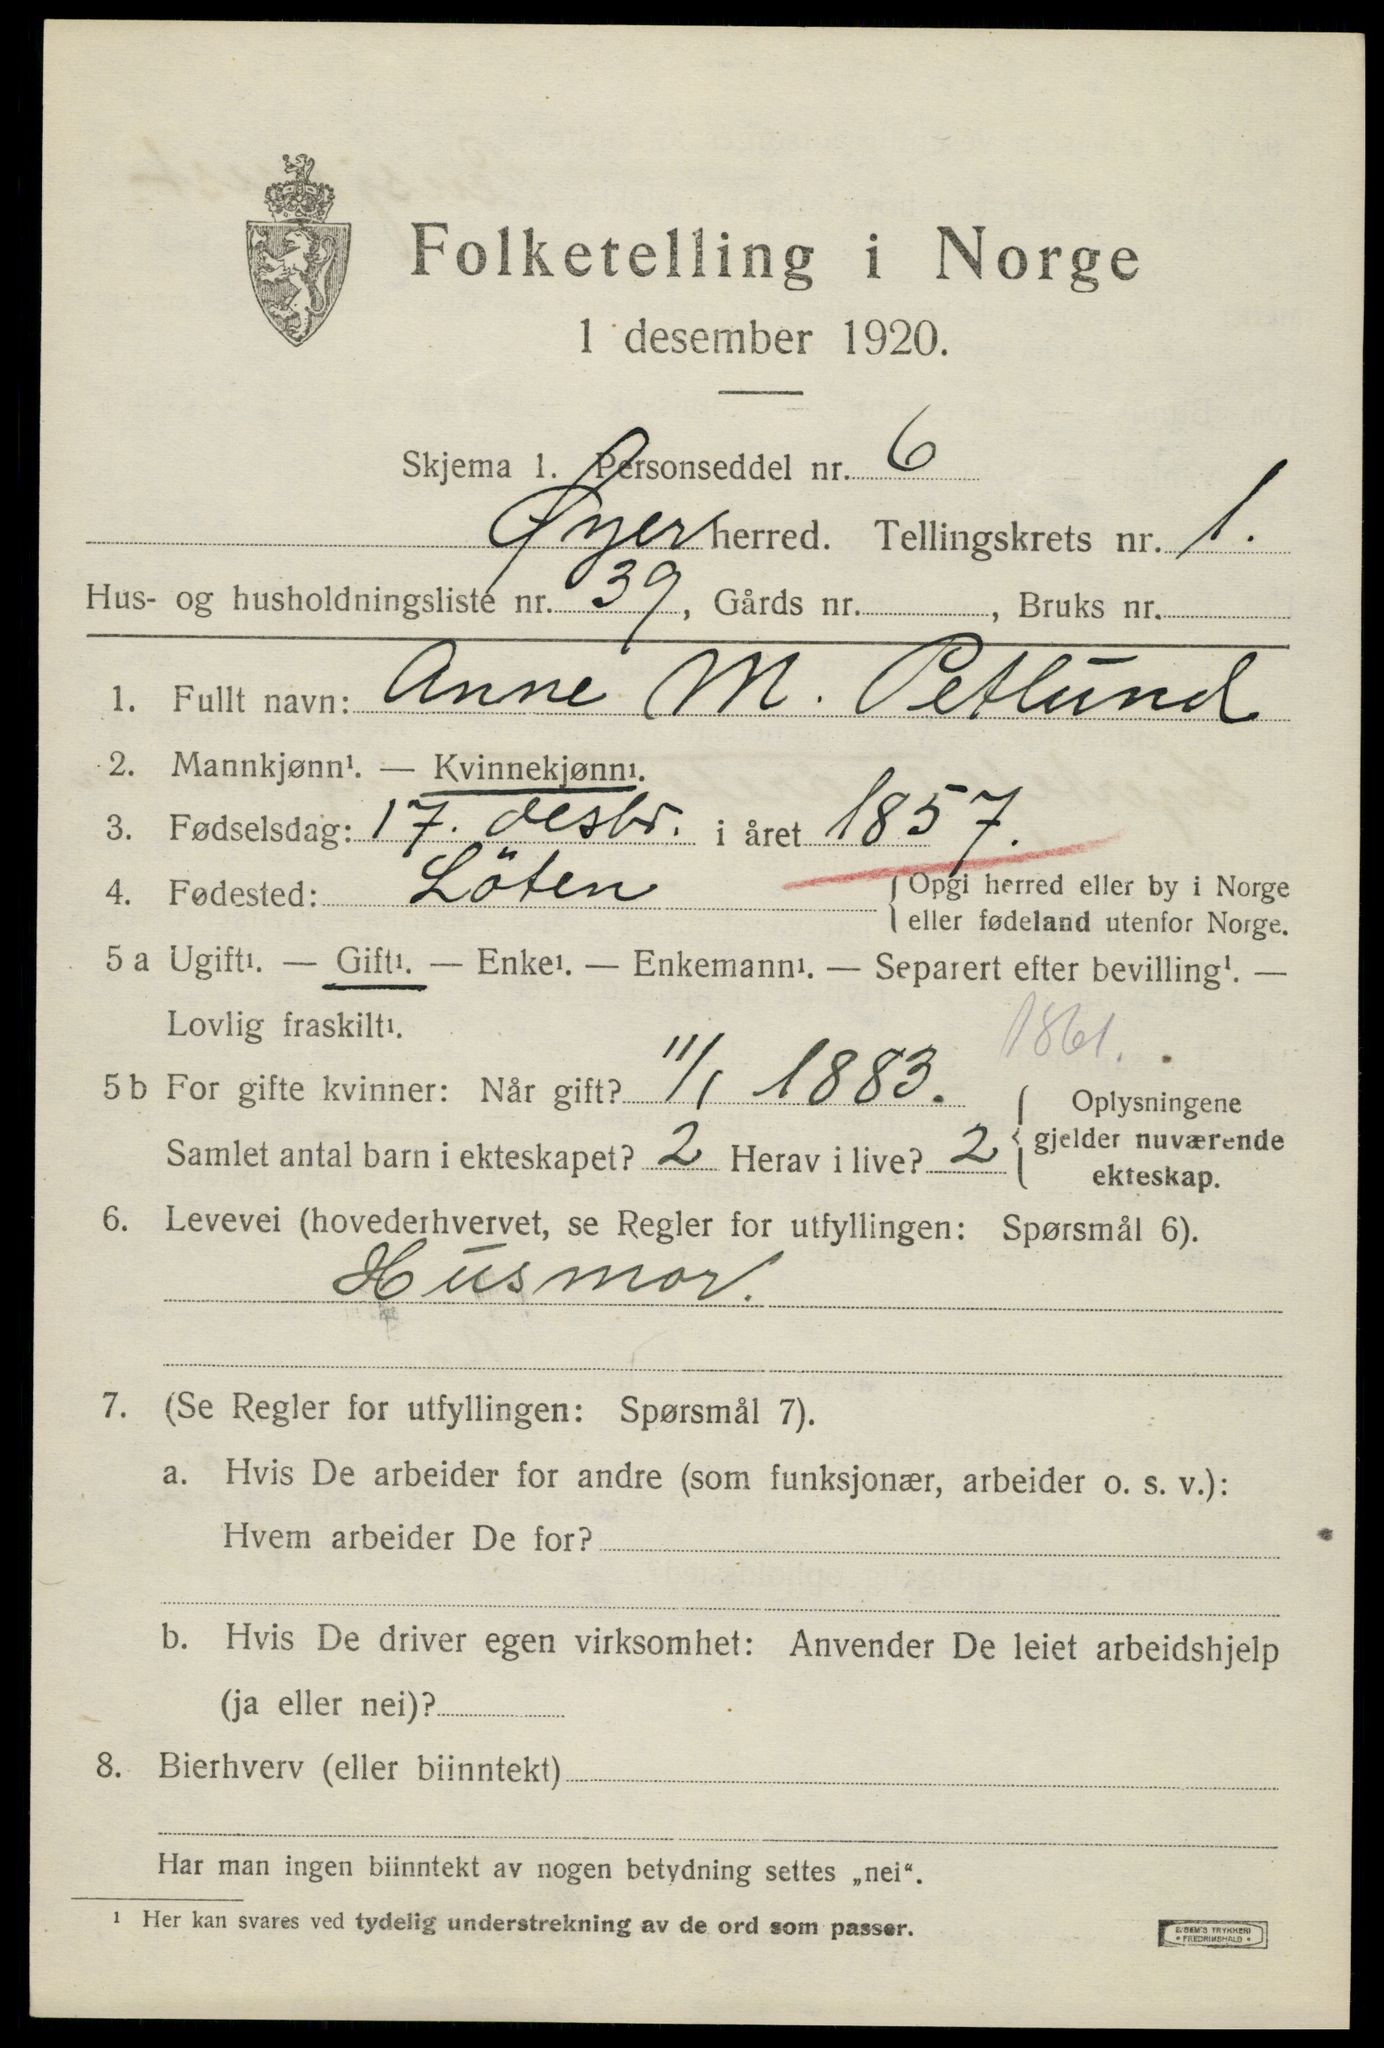 Folketelling i Norge
1 desember 1920.
Skjema 1. Personseddel nr. 6
Øyer herred. Tellingskrets nr. 1.
Hus- og husholdningsliste nr. 39, Gårds nr. , Bruks nr.
1. Fullt navn: Anne M. Petlund
2. Mannkjønn¹. — Kvinnekjønn¹.
3. Fødselsdag: 17. desbr. i året 1857.
4. Fødested: Löten {Opgi herred eller by i Norge
eller fødeland utenfor Norge.
5 a Ugift¹. — Gift¹. — Enke¹. — Enkemann¹. — Separert efter bevilling¹. —
Lovlig fraskilt¹.
1861.
5 b For gifte kvinner: Når gift? 11/1 1883. { Oplysningene
Samlet antal barn i ekteskapet? 2 Herav i live? 2 gjelder nuværende
ekteskap.
6. Levevei (hovederhvervet, se Regler for utfyllingen: Spørsmål 6).
Husmor.
7. (Se Regler for utfyllingen: Spørsmål 7).
a. Hvis De arbeider for andre (som funksjonær, arbeider o. s. v.):
Hvem arbeider De for?
b. Hvis De driver egen virksomhet: Anvender De leiet arbeidshjelp
(ja eller nei)?
8. Bierhverv (eller biinntekt)
Har man ingen biinntekt av nogen betydning settes „nei“.
¹ Her kan svares ved tydelig understrekning av de ord som passer.
TRYKKERI
• FREDRIKSHALD •